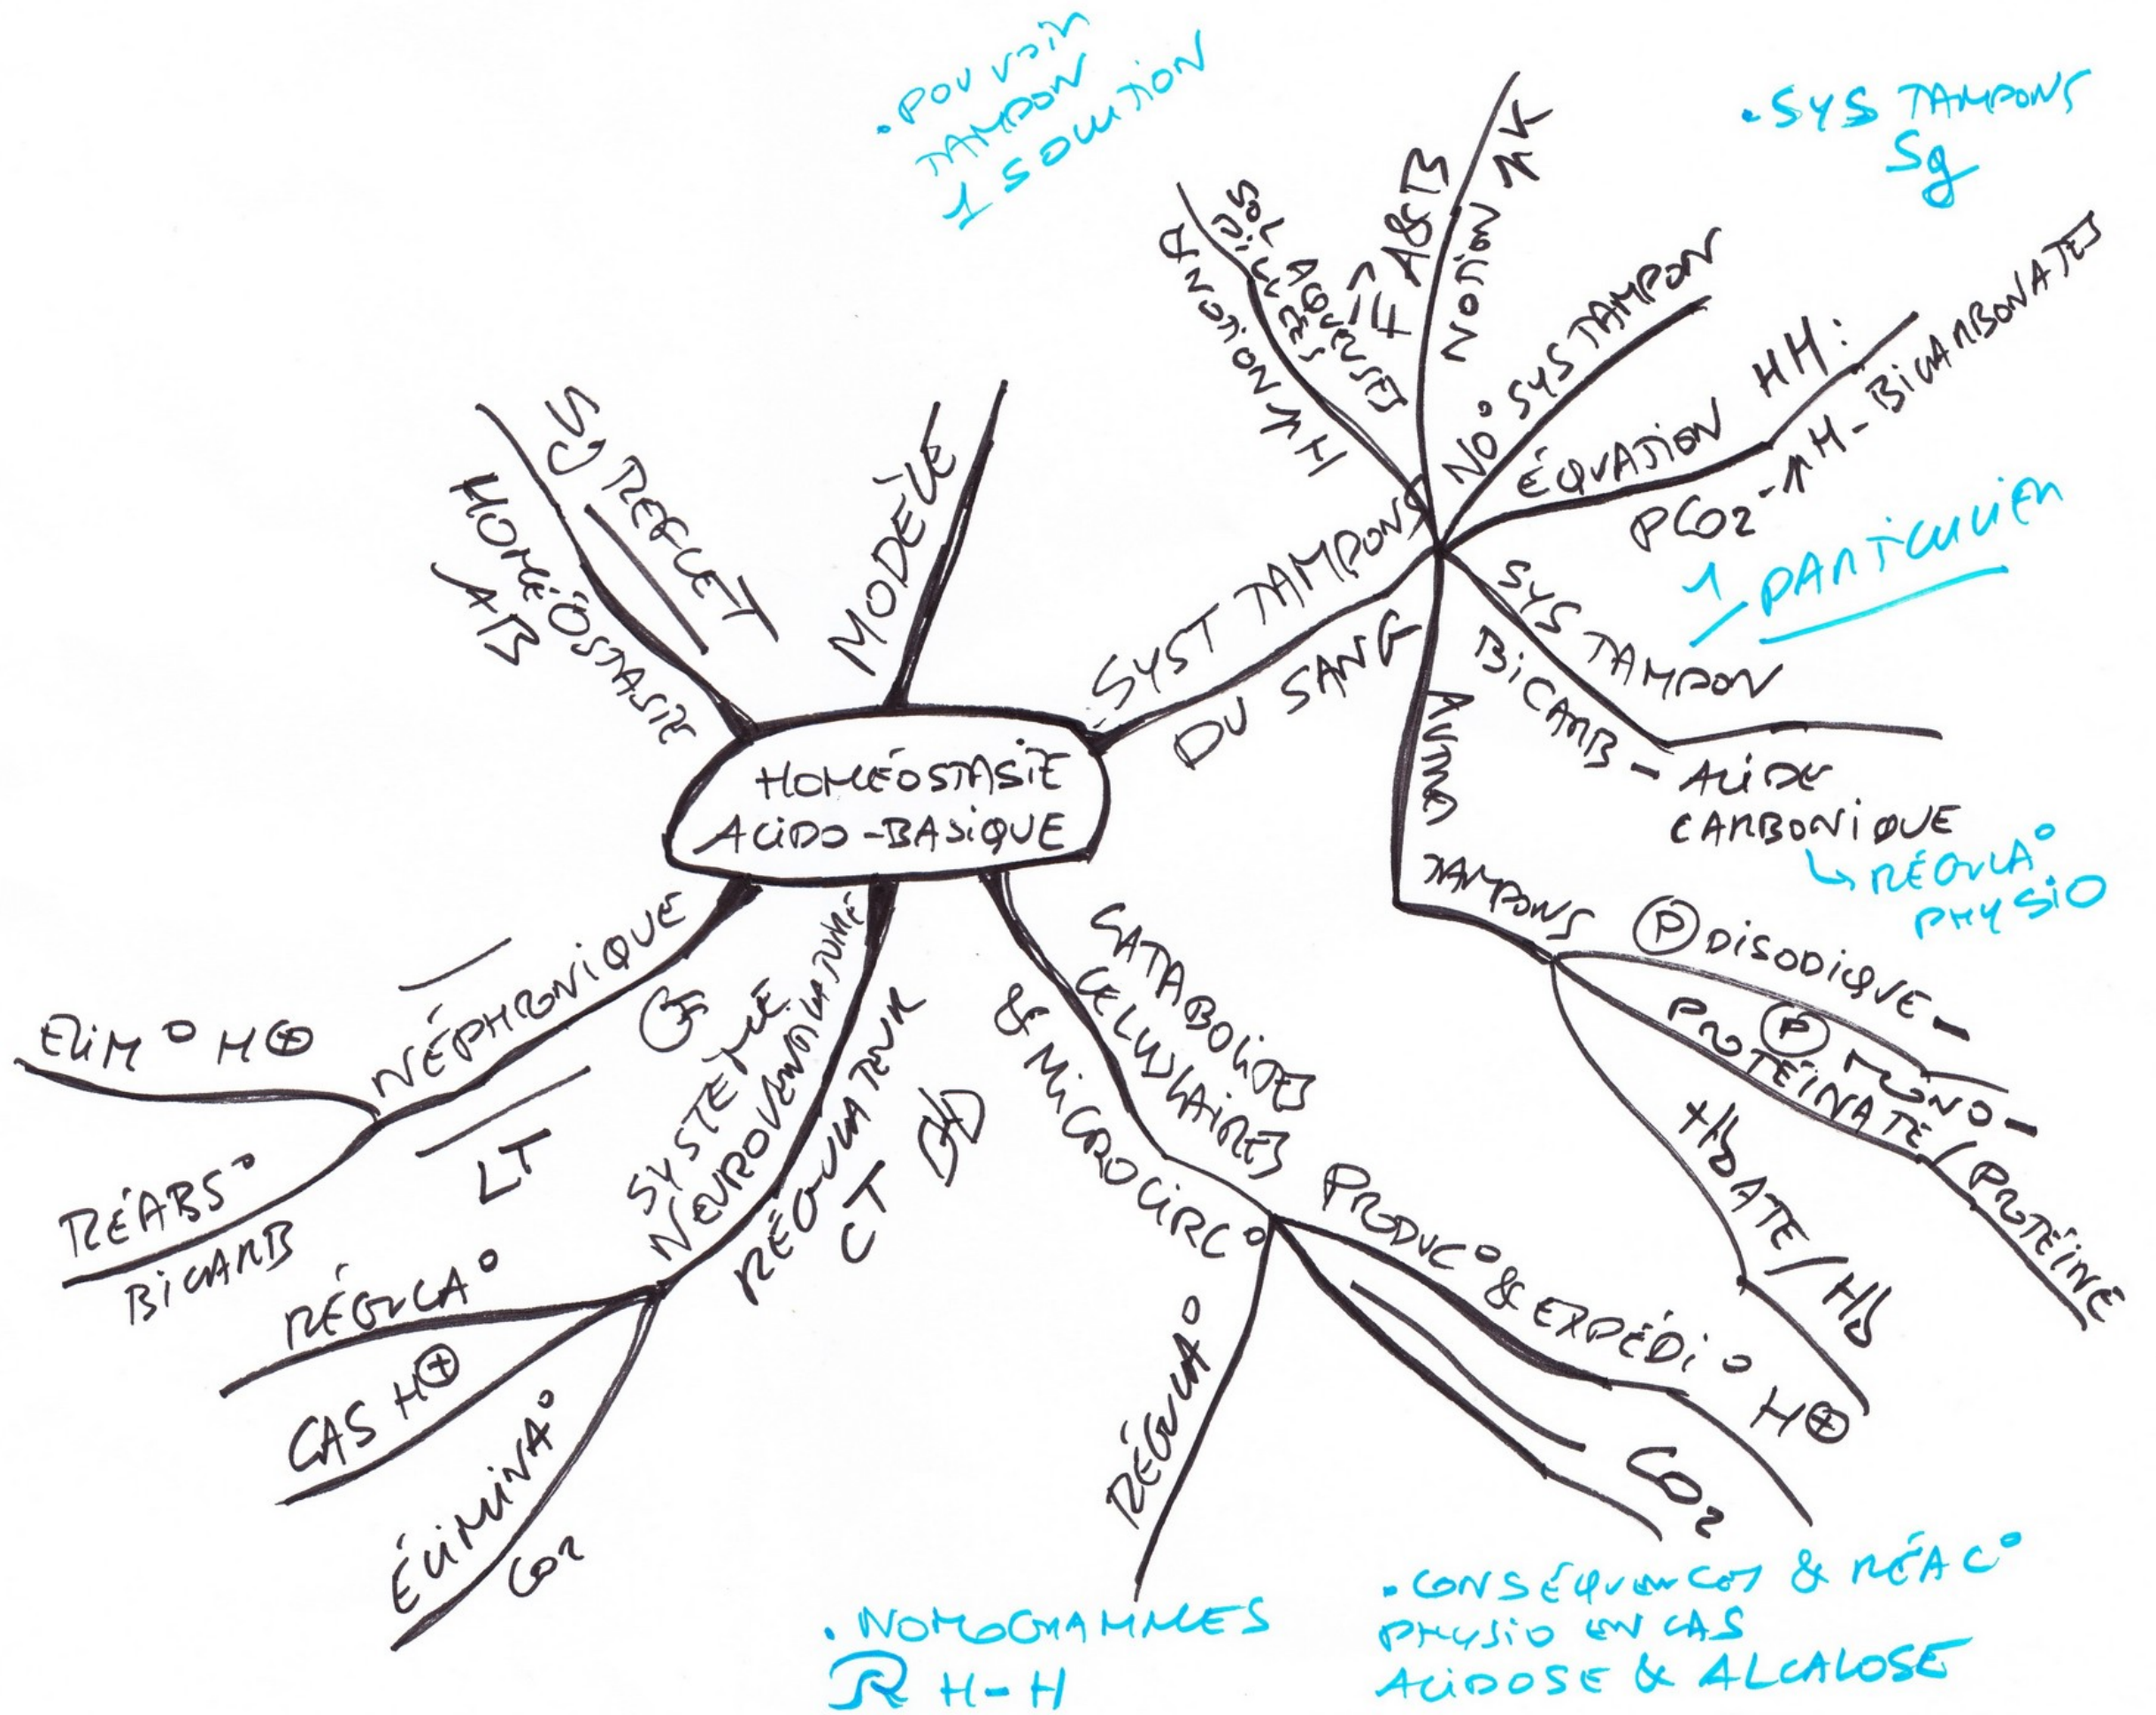 • POUVOIR
TAMPON
1 SOLUTION
• SYS TAMPONS
Sg
HOMÉOSTASIE
ACIDO-BASIQUE
MODÈLE
HOMÉOSTASIE
AB
REFLET
SYST TAMPONS
DU SANG
NOTION PH
SOL
AQUEUSES
DILUÉES
A&B
NOTION PK
NO° SYS TAMPON
ÉQUATION HH:
PCO2-PH-BICARBONATES
1 PARTICULIER
SYS TAMPON
BICARB - ACIDE
CARBONIQUE
↳ RÉGULA°
PHYSIO
AUTRES
TAMPONS
Ⓟ DISODIQUE -
Ⓟ MONO -
PROTÉINATE / PROTÉINE
HbATE / Hb
CATABOLITES
CELLULAIRES
& MICROCIRC°
PRODUC° & EXPÉDI° H⊕
CO2
RÉGULA°
SYSTÈME
NEUROVENTILATOIRE
RÉGULATEUR
CT
RÉGULA°
CAS H⊕
ÉLIMINA°
CO2
NÉPHRONIQUE
LT
ELIM° H⊕
RÉABS°
BICARB
• NOMOGRAMMES
R H-H
• CONSÉQUENCES & RÉAC°
PHYSIO EN CAS
ACIDOSE & ALCALOSE